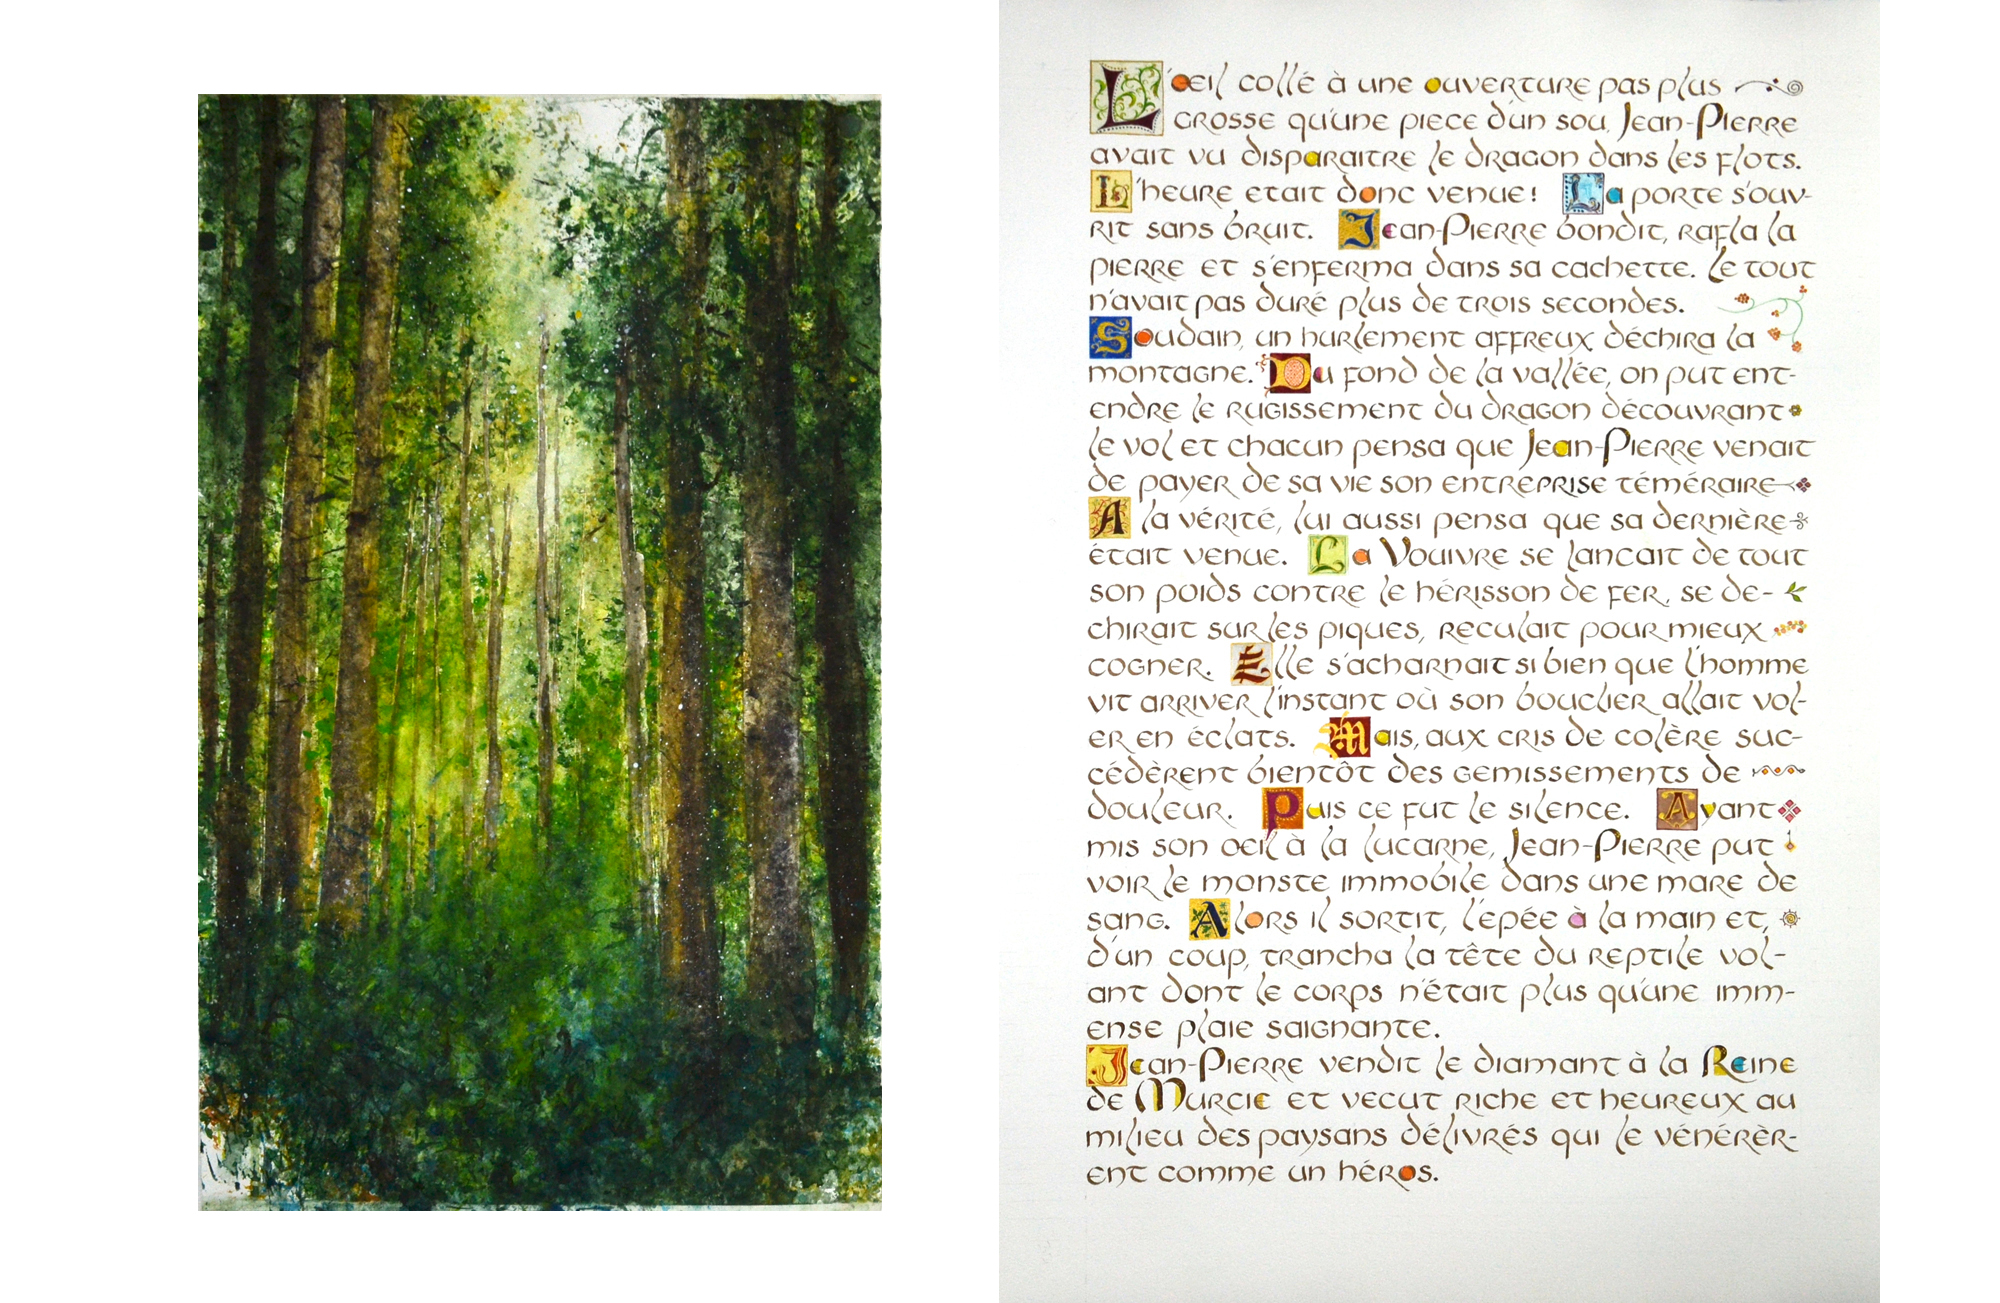 L'oeil collé à une ouverture pas plus
grosse qu'une piece d'un sou, Jean-Pierre
avait vu disparaitre le dragon dans les flots.
L'heure etait donc venue! La porte s'ouv-
rit sans bruit. Jean-Pierre bondit, rafla la
pierre et s'enferma dans sa cachette. Le tout
n'avait pas duré plus de trois secondes.
Soudain, un hurlement affreux déchira la
montagne. Du fond de la vallée, on put ent-
endre le rugissement du dragon découvrant
le vol et chacun pensa que Jean-Pierre venait
de payer de sa vie son entreprise téméraire
A la vérité, lui aussi pensa que sa dernière
était venue. La Vouivre se lancait de tout
son poids contre le hérisson de fer, se de-
chirait sur les piques, reculait pour mieux
cogner. Elle s'acharnait si bien que l'homme
vit arriver l'instant où son bouclier allait vol-
er en éclats. Mais, aux cris de colère suc-
cédèrent bientôt des gemissements de
douleur. Puis ce fut le silence. Ayant
mis son oeil à la lucarne, Jean-Pierre put
voir le monste immobile dans une mare de
sang. Alors il sortit, l'epée à la main et,
d'un coup, trancha la tête du reptile vol-
ant dont le corps n'était plus qu'une imm-
ense plaie saignante.
Jean-Pierre vendit le diamant à la Reine
de Murcie et vecut riche et heureux au
milieu des paysans délivrés qui le vénérèr-
ent comme un héros.